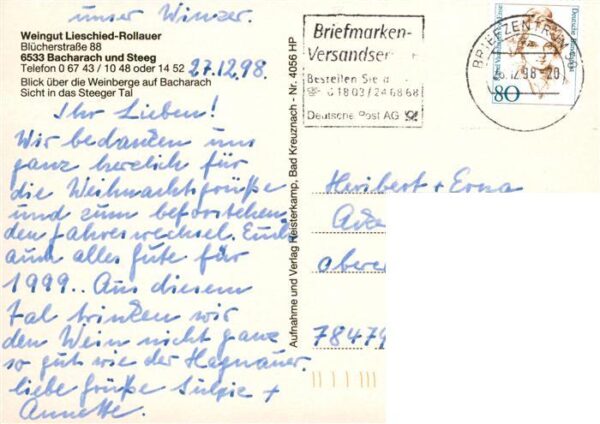 unser Winzer.
Weingut Lieschied-Rollauer
Blücherstraße 88
6533 Bacharach und Steeg
Telefon 0 67 43 / 10 48 oder 14 52
27.12.98.
Blick über die Weinberge auf Bacharach
Sicht in das Steeger Tal
Ihr Lieben!
Wir bedanken uns
ganz herzlich für
die Weihnachtsgrüße
und zum beforstehen
den Jahreswechsel. Euch
auch alles Gute für
1999.. Aus diesem
Tal trinken wir
den Wein nicht ganz
so gut wie der Hagnauer.
liebe Grüße +
Annette.
Aufnahme und Verlag Reisterkamp, Bad Kreuznach - Nr. 4056 HP
Briefmarken-
Versandser
Bestellen Sie
0 18 03 / 24 68 68
Deutsche Post AG
BRIEFZENTRUM
12.98-20
Deutsche Bundespost
80
Heribert + Erna
78479